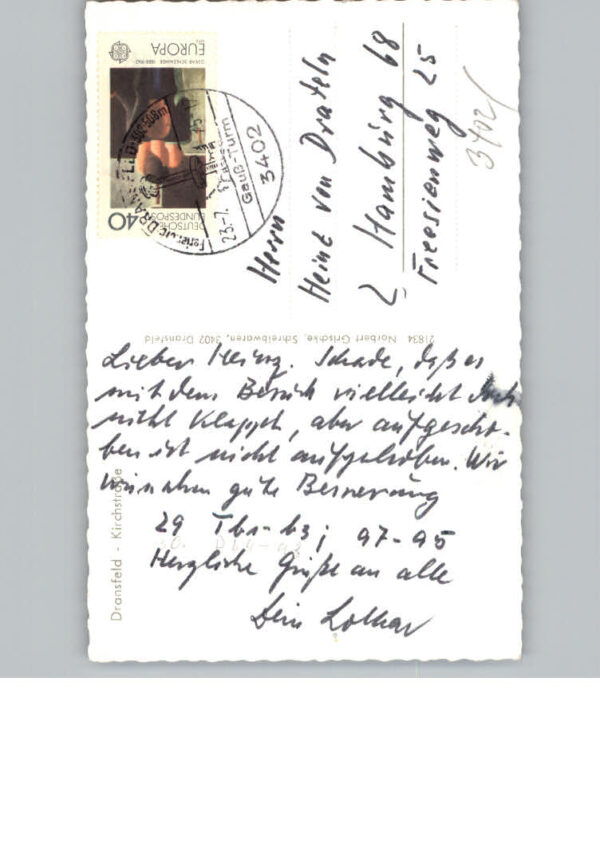 EUROPA
OSKAR SCHLEMMER 1888-1943
DEUTSCHE
BUNDESPOST
40
3402
Gauß-Turm
23.-7.
Herrn
Heinz von Drateln
2 Hamburg 68
Freesienweg 25
3402/
21834 Norbert Grischke, Schreibwaren, 3402 Dransfeld
Dransfeld - Kirchstraße
Lieber Heinz. Schade, daß es
mit dem Besuch vielleicht doch
nicht klappt, aber aufgescho-
ben ist nicht aufgehoben. Wir
wünschen gute Besserung
29 Tb1-b3; 97-95
Herzliche Grüße an alle
Dein Lothar